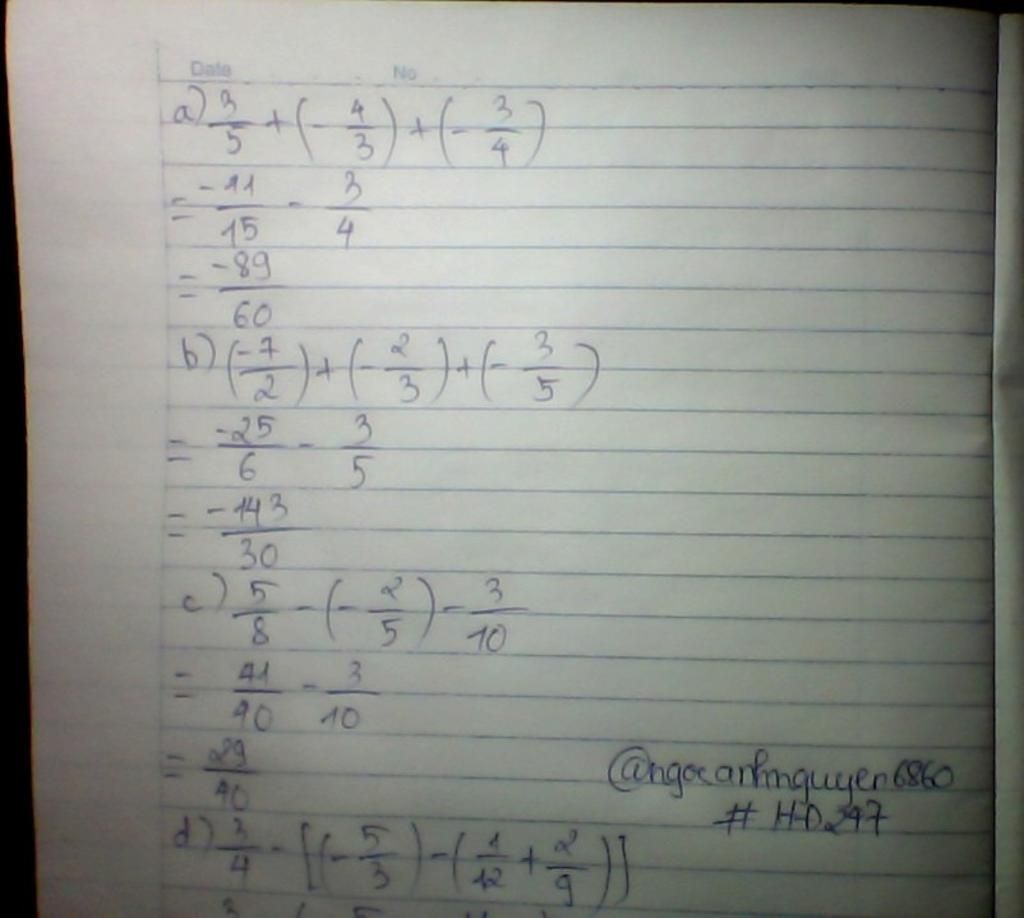 Date No
a) 3/5 + (- 4/3) + (- 3/4)
= -11/15 - 3/4
= -89/60
b) (-7/2) + (- 2/3) + (- 3/5)
= -25/6 - 3/5
= -143/30
c) 5/8 - (- 2/5) - 3/10
= 41/40 - 3/10
= 29/40
@ngocanhnguyen6860
# HD247
d) 3/4 - [(- 5/3) - (1/12 + 2/9)]